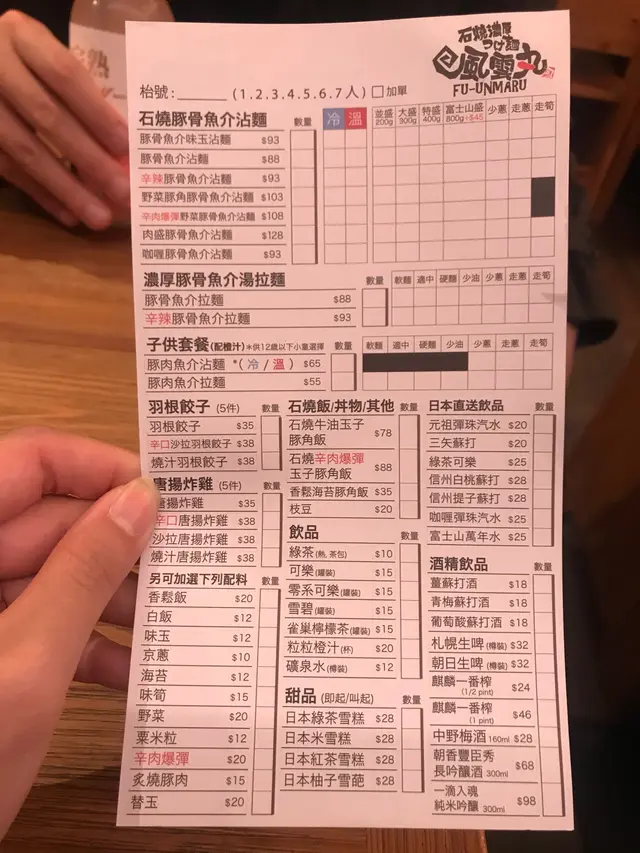 石燒濃厚
つけ麵
風雲丸
FU-UNMARU
枱號:______ (1.2.3.4.5.6.7人) □加單
石燒豚骨魚介沾麵 數量 冷 溫 並盛200g 大盛300g 特盛400g 富士山盛800g+$45 少蔥 走蔥 走筍
豚骨魚介味玉沾麵 $93
豚骨魚介沾麵 $88
辛辣豚骨魚介沾麵 $93
野菜豚角豚骨魚介沾麵 $103
辛肉爆彈野菜豚骨魚介沾麵 $108
肉盛豚骨魚介沾麵 $128
咖喱豚骨魚介沾麵 $93
濃厚豚骨魚介湯拉麵 數量 軟麵 適中 硬麵 少油 少蔥 走蔥 走筍
豚骨魚介拉麵 $88
辛辣豚骨魚介拉麵 $93
子供套餐(配橙汁)*供12歲以下小童選擇 數量 軟麵 適中 硬麵 少油 少蔥 走蔥 走筍
豚肉魚介沾麵 *(冷/溫) $65
豚肉魚介拉麵 $55
羽根餃子 (5件) 數量
羽根餃子 $35
辛口沙拉羽根餃子 $38
燒汁羽根餃子 $38
唐揚炸雞 (5件) 數量
唐揚炸雞 $35
辛口唐揚炸雞 $38
沙拉唐揚炸雞 $38
燒汁唐揚炸雞 $38
另可加選下列配料 數量
香鬆飯 $20
白飯 $12
味玉 $12
京蔥 $10
海苔 $12
味筍 $15
野菜 $20
粟米粒 $12
辛肉爆彈 $20
炙燒豚肉 $15
替玉 $20
石燒飯/丼物/其他 數量
石燒牛油玉子
豚角飯 $78
石燒辛肉爆彈
玉子豚角飯 $88
香鬆海苔豚角飯 $35
枝豆 $20
飲品 數量
綠茶(熱,茶包) $10
可樂(罐裝) $15
零系可樂(罐裝) $15
雪碧(罐裝) $15
雀巢檸檬茶(罐裝) $15
粒粒橙汁(杯) $20
礦泉水(樽裝) $12
甜品 (即起/叫起) 數量
日本綠茶雪糕 $28
日本米雪糕 $28
日本紅茶雪糕 $28
日本柚子雪葩 $28
日本直送飲品 數量
元祖彈珠汽水 $20
三矢蘇打 $20
綠茶可樂 $25
信州白桃蘇打 $28
信州提子蘇打 $28
咖喱彈珠汽水 $25
富士山萬年水 $25
酒精飲品 數量
薑蘇打酒 $18
青梅蘇打酒 $18
葡萄酸蘇打酒 $18
札幌生啤 (樽裝) $32
朝日生啤 (樽裝) $32
麒麟一番榨
(1/2 pint) $24
麒麟一番榨
(1 pint) $46
中野梅酒 160ml $28
朝香豐臣秀
長吟釀酒 300ml $68
一滴入魂
純米吟釀 300ml $98